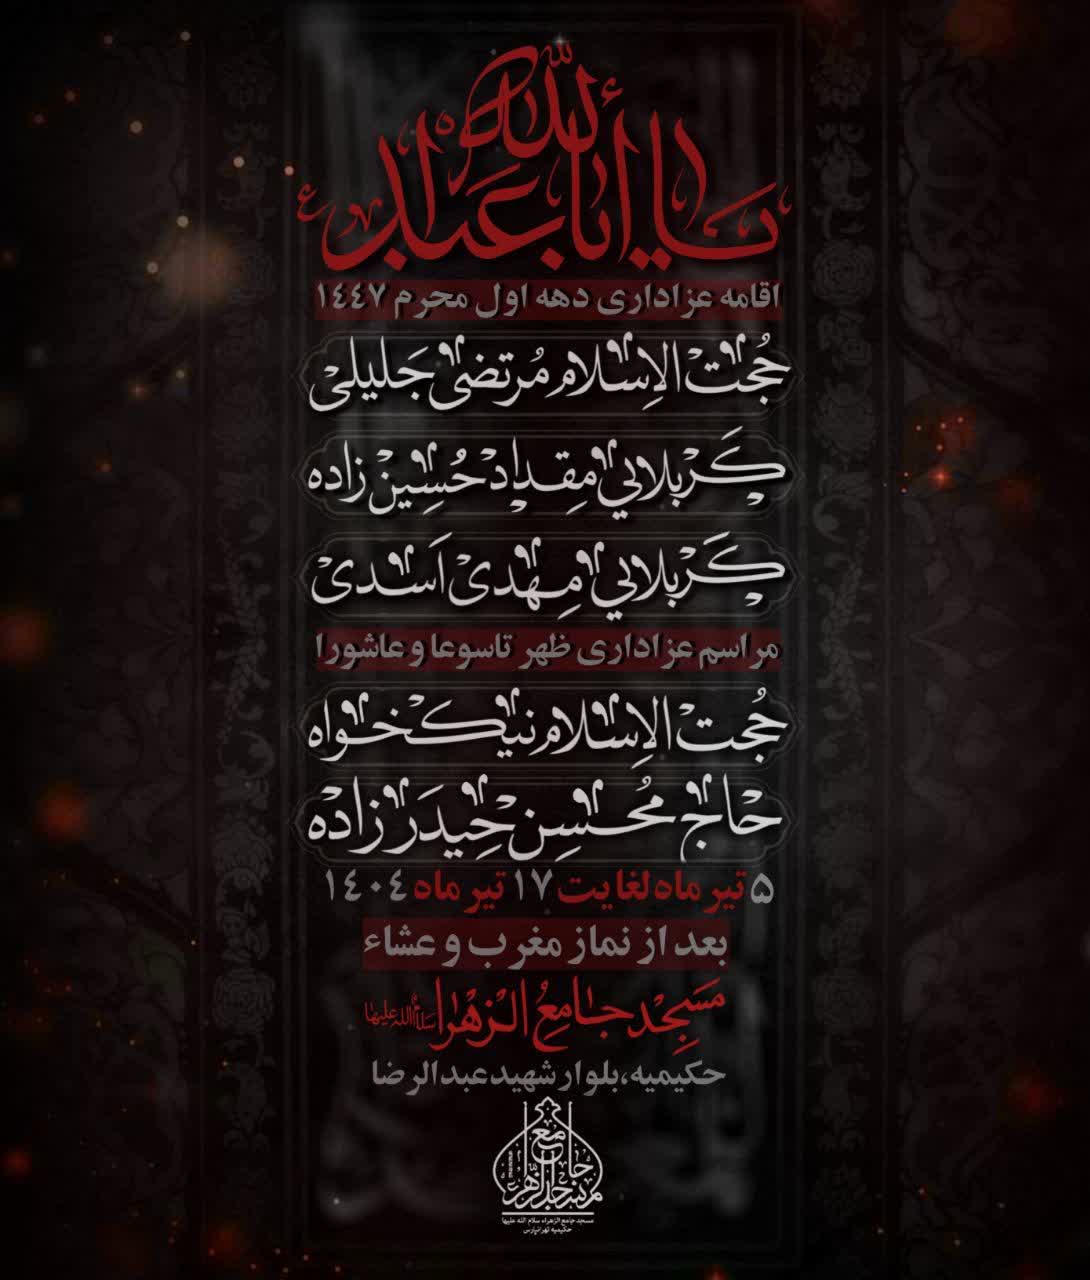 یا أبا عبدالله
اقامه عزاداری دهه اول محرم ۱۴۴۷
حُجت الاِسلام مُرتضی جَلیلی
کَربلایی مِقداد حُسِین زاده
کَربلایی مِهدی اَسَدی
مراسم عزاداری ظهر تاسوعا و عاشورا
حُجت الاِسلام نیکخواه
حاج مُحسِن حِیدَرزاده
۵ تیر ماه لغایت ۱۷ تیر ماه ۱۴۰۴
بعد از نماز مغرب و عشاء
مَسجِد جامِعُ الزهرا سلام الله علیها
حکیمیه، بلوار شهید عبدالرضا
مسجد جامع الزهراء
مسجد جامع الزهراء سلام الله علیها
حکیمیه تهرانپارس